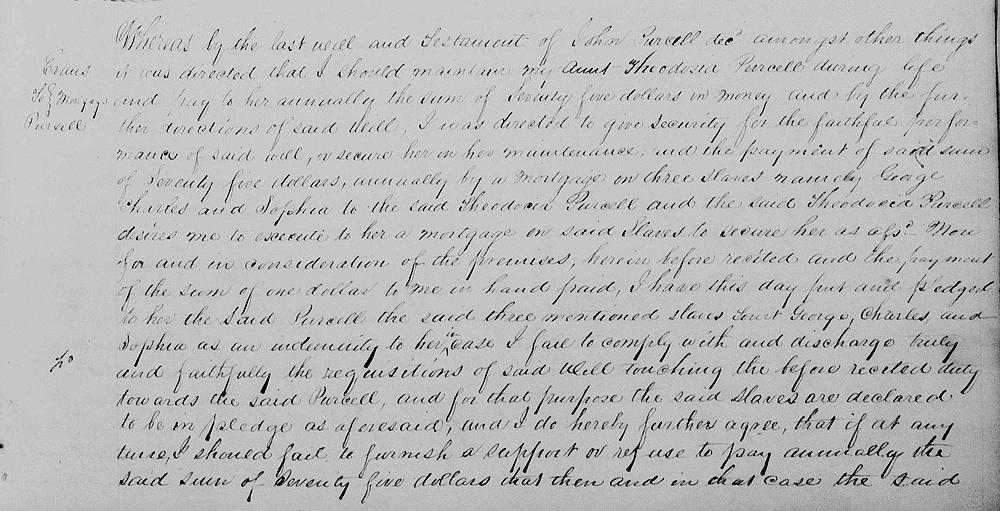 Whereas by the last will and Testament of John Purcell decd amongst other things
Evans
it was directed that I should maintain my aunt Theodosia Purcell during life
To } Mortgage
and pay to her annually the sum of Seventy five dollars in money and by the fur-
Purcell
ther directions of said Will, I was directed to give security for the faithful perfor-
mance of said will, or secure her in her maintenance, and the payment of said sum
of Seventy five dollars, annually by a mortgage on three slaves namely George
Charles and Sophia to the said Theodocia Purcell and the said Theodocia Purcell
desires me to execute to her a mortgage on said Slaves to secure her as afsd. Now
for and in consideration of the premises, herein before recited and the payment
of the sum of one dollar to me in hand paid, I have this day put and pledged
to her the said Purcell the said three mentioned slaves George, Charles, and
Sophia as an indemnity to her in case I fail to comply with and discharge truly
and faithfully the requisitions of said Will touching the before recited duty
towards the said Purcell, and for that purpose the said slaves are declared
to be in pledge as aforesaid, and I do hereby further agree, that if at any
time, I should fail to furnish a support or refuse to pay annually the
said sum of Seventy five dollars that then and in that case the said